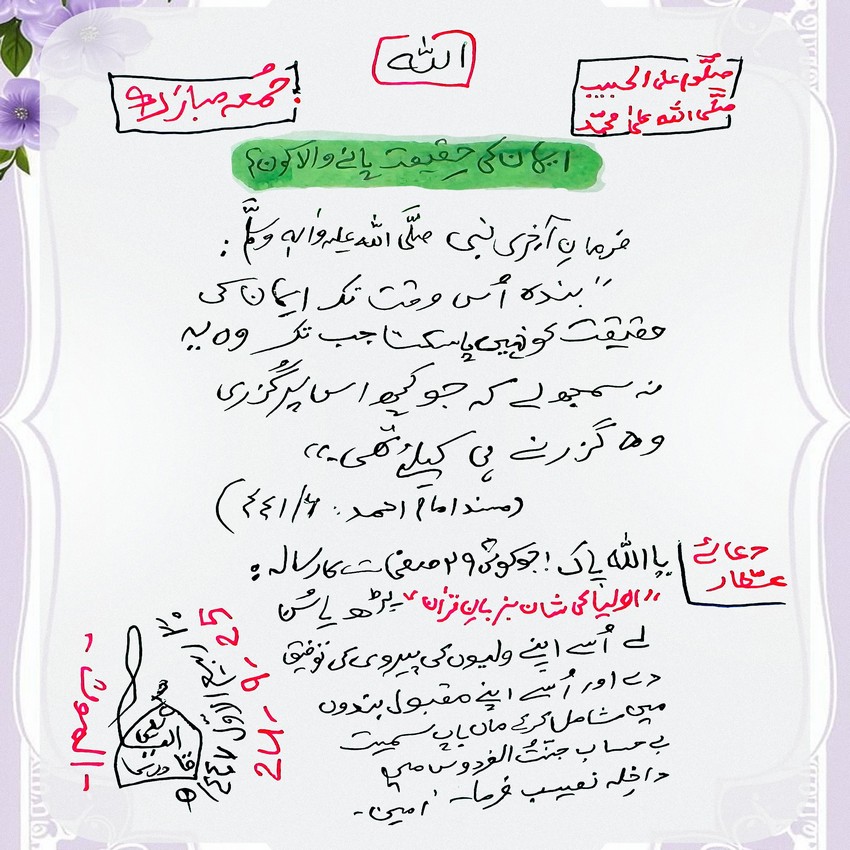 اللہ
صلُّوا علی الحبیب
صلَّی اللہ علیٰ محمَّد
جُمُعہ مبارَک
ایمان کی حقیقت پانے والا کون؟
فرمانِ آخری نبی صلَّی اللہ علیہ واٰلہٖ وسلَّم:
"بندہ اُس وقت تک ایمان کی
حقیقت کو نہیں پاسکتا جب تک وہ یہ
نہ سمجھ لے کہ جو کچھ اس پر گُزری
وہ گزرنے ہی کیلئے تھی۔"
(مسند امام احمد: ۶/۴۴۱)
دعائے
عطار
یا اللہ پاک! جو کوئی ۲۹ صفحات کا رسالہ:
"اولیا کی شان بزبانِ قرآن" پڑھ یا سُن
لے اُسے اپنے ولیوں کی پیروی کی توفیق
دے اور اُسے اپنے مقبول بندوں
میں شامل کرکے ماں باپ سمیت
بے حساب جنّتُ الفردوس میں
داخلہ نصیب فرما۔ اٰمین۔
ربیع الاوّل
25